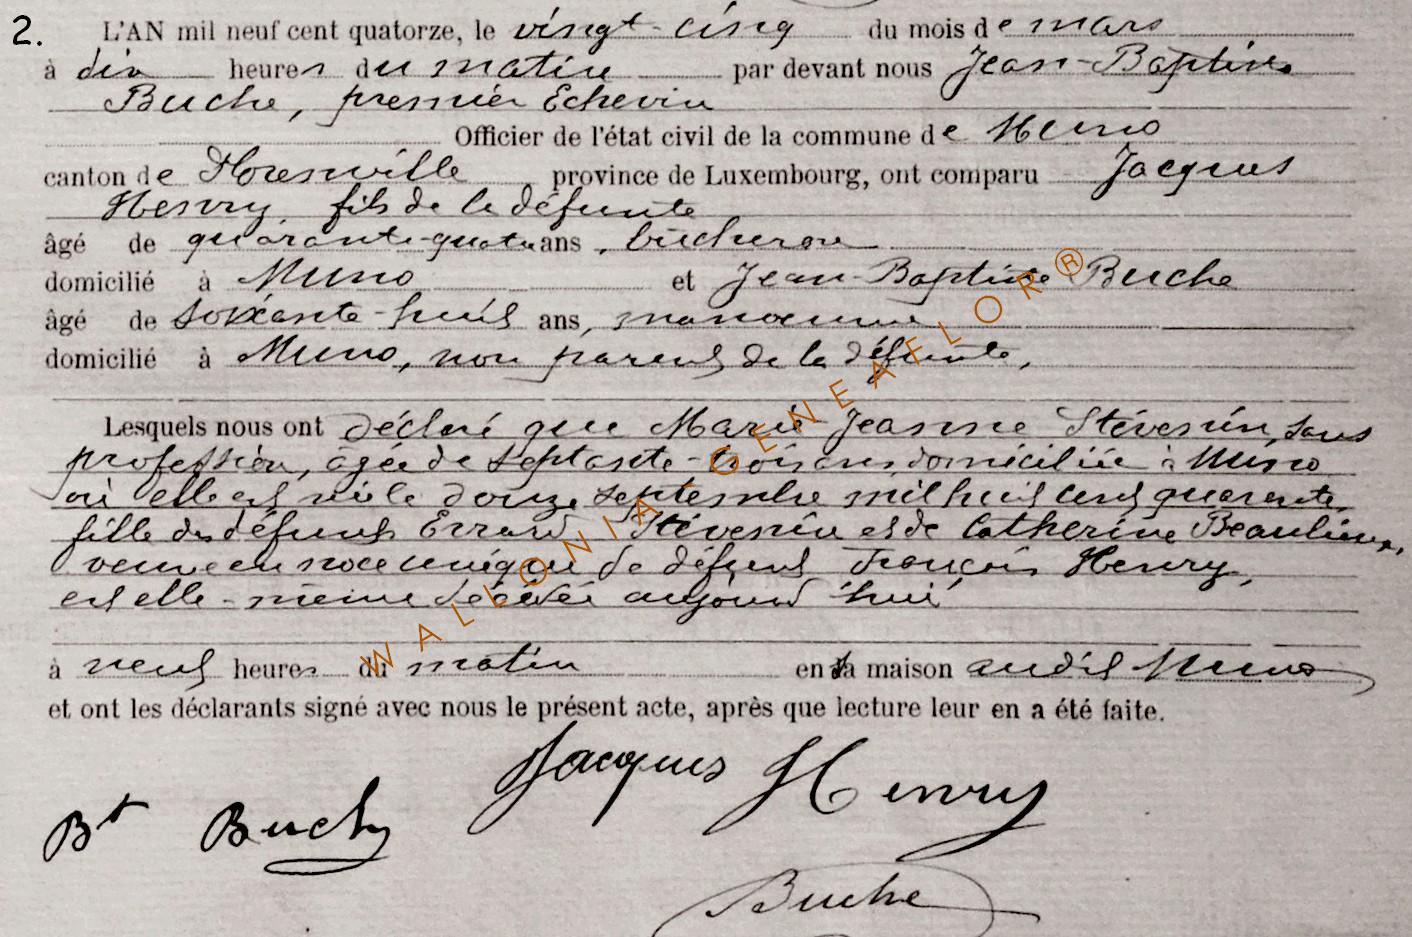 2.
L'AN mil neuf cent quatorze, le vingt-cinq du mois de mars
à dix heures du matin par devant nous Jean-Baptiste
Buche, premier Echevin
Officier de l'état civil de la commune de Muno
canton de Florenville province de Luxembourg, ont comparu Jacques
Henry, fils de la défunte
âgé de quarante-quatre ans, bûcheron
domicilié à Muno et Jean-Baptiste Buche
âgé de soixante-huit ans, manoeuvre
domicilié à Muno, non parent de la défunte,
Lesquels nous ont déclaré que Marie Jeanne Stévenin, sans
profession, âgée de septante-trois ans, domiciliée à Muno
où elle est née le douze septembre mil huit cent quarante,
fille des défunts Errard Stévenin et de Catherine Beaulieux,
veuve en noce unique de défunt François Henry,
est elle-même décédée aujourd'hui
à neuf heures du matin en sa maison audit Muno
et ont les déclarants signé avec nous le présent acte, après que lecture leur en a été faite.
Jacques Henry
Bt Buche
Buche
WALLONIA - GENEAFLOR®